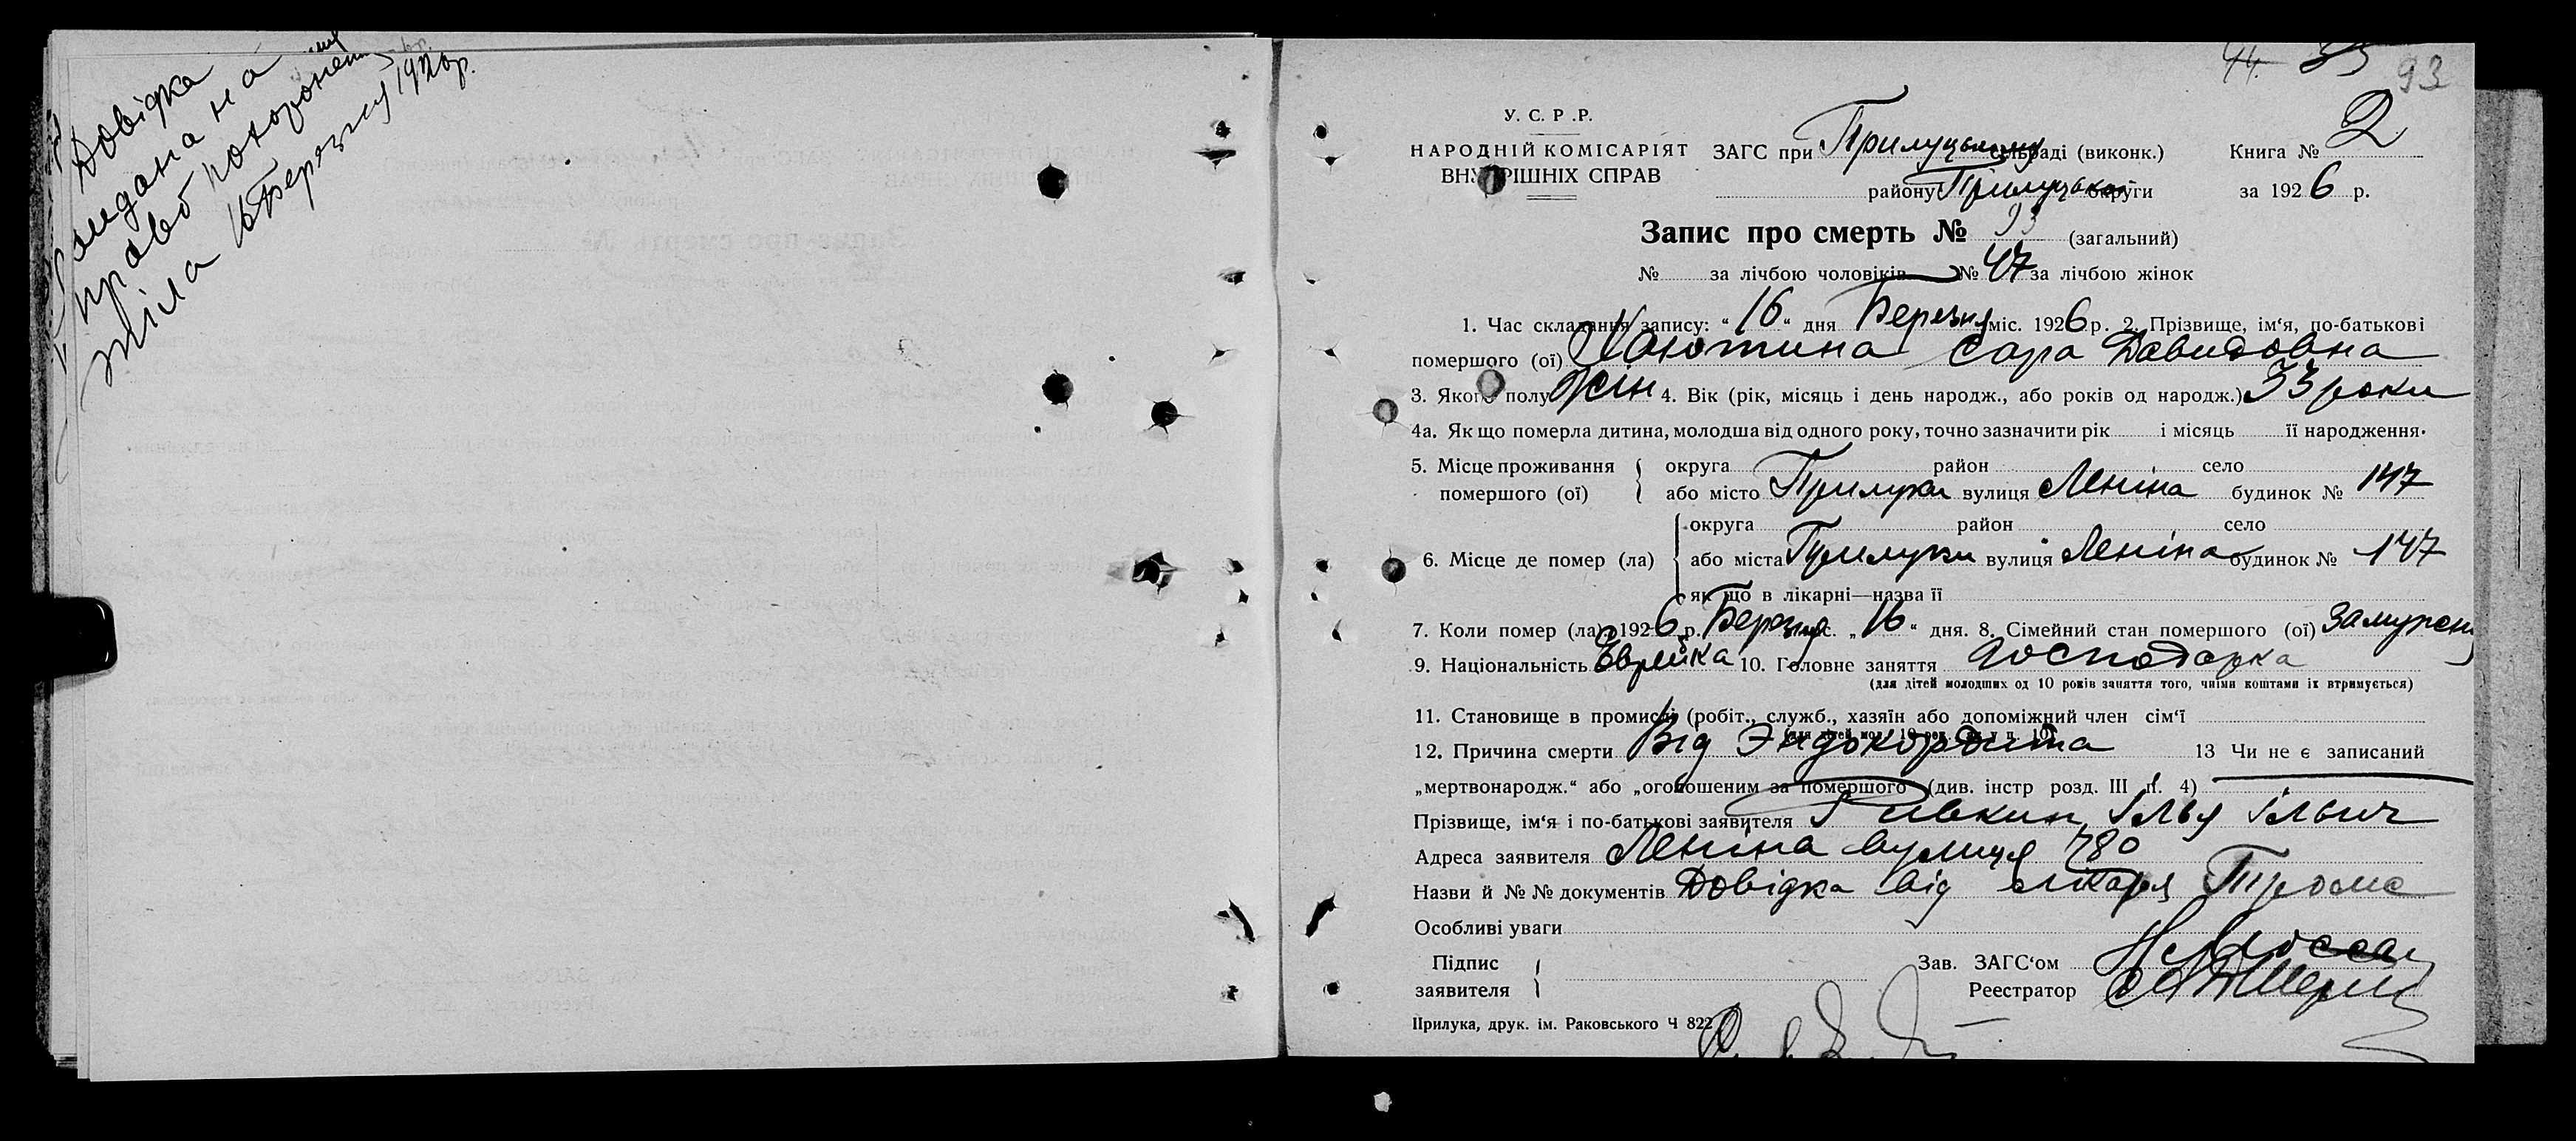 Довідка
видана на
право похоронення
тіла 16 Березня 1926 р.
93
У. С. Р. Р.
НАРОДНІЙ КОМІСАРІЯТ
ВНУТРІШНІХ СПРАВ
ЗАГС при Прилуцькому сельраді (виконк.) Книга № 2
району Прилуцької округи за 1926 р.
Запис про смерть № 93 (загальний)
№ за лічбою чоловіків № 47 за лічбою жінок
1. Час складання запису: "16" дня Березня міс. 1926 р. 2. Прізвище, ім'я, по-батькові
помершого (ої) Хаютина Сара Давидовна
3. Якого полу жін 4. Вік (рік, місяць і день народж., або років од народж.) 33 роки
4а. Як що померла дитина, молодша від одного року, точно зазначити рік і місяць її народження.
5. Місце проживання помершого (ої) { округа район село
або місто Прилуки вулиця Леніна будинок № 147
6. Місце де помер (ла) { округа район село
або міста Прилуки вулиця Леніна будинок № 147
як що в лікарні—назва її
7. Коли помер (ла) 1926 р. Березня міс. „16" дня. 8. Сімейний стан помершого (ої) Замужем
9. Національність Єврейка 10. Головне заняття Господарка
(для дітей молодших од 10 років заняття того, чиїми коштами їх втримується)
11. Становище в промислі (робіт., служб., хазяїн або допоміжний член сім'ї
12. Причина смерти Від Эндокордита 13 Чи не є записаний
„мертвонародж." або „оголошеним за помершого" (див. інстр розд. III п. 4)
Прізвище, ім'я і по-батькові заявителя Ривкин Ілья Ільич
Адреса заявителя Леніна вулиця 780
Назви й №№ документів Довідка від лікаря
Особливі уваги
Підпис заявителя {
Зав. ЗАГС'ом
Реестратор
Прилука, друк. ім. Раковського Ч 822